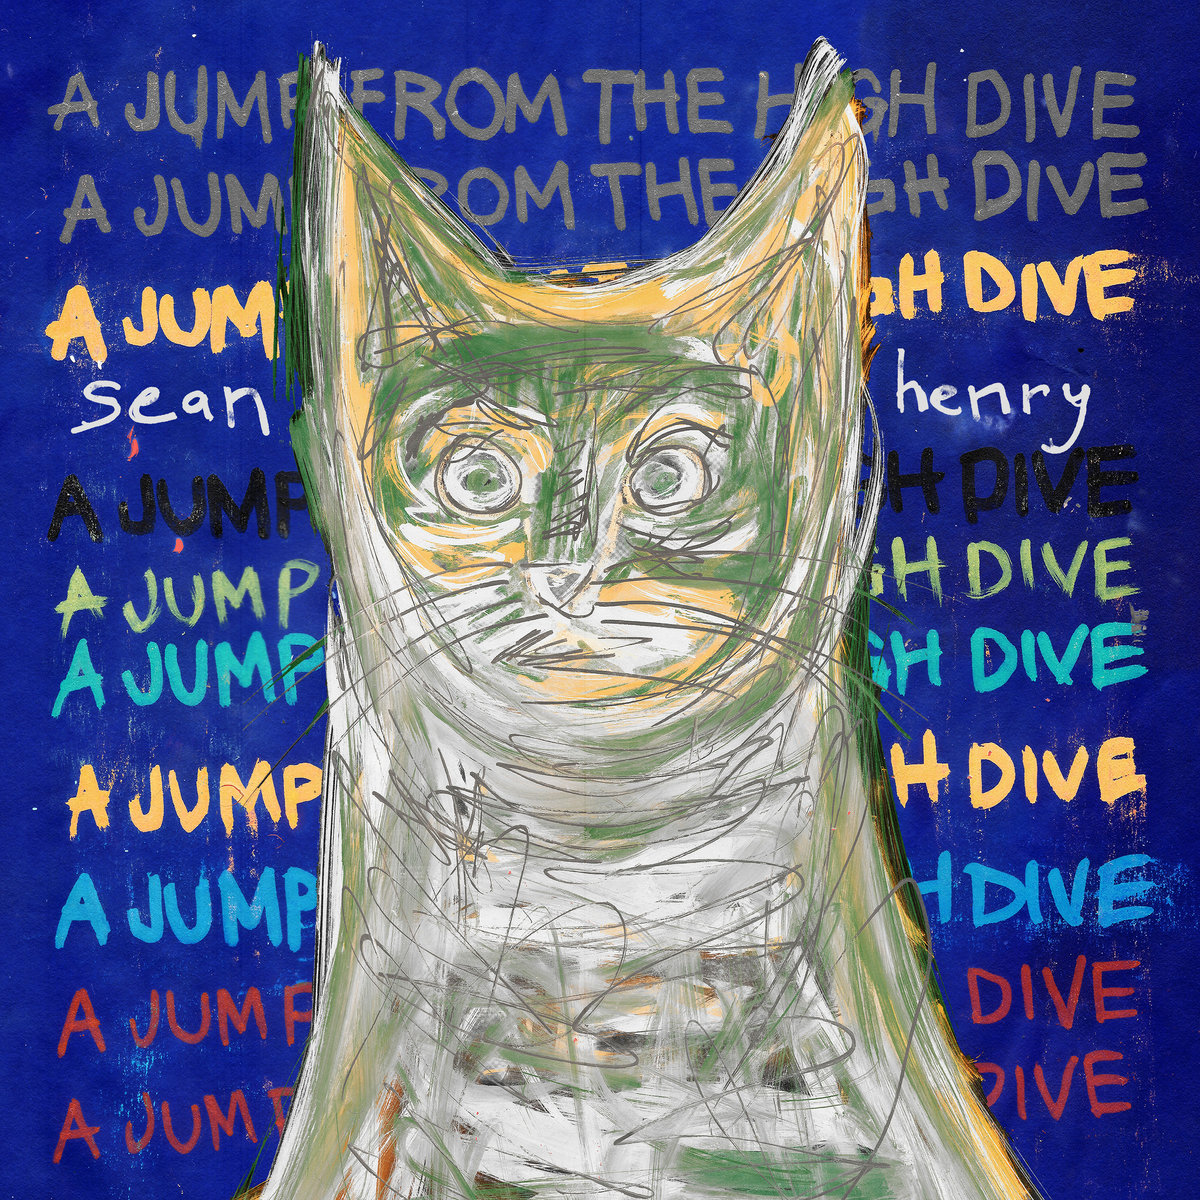 A JUMP FROM THE HIGH DIVE
A JUMP FROM THE HIGH DIVE
A JUMP GH DIVE
sean henry
A JUMP GH DIVE
A JUMP GH DIVE
A JUMP GH DIVE
A JUMP H DIVE
A JUMP H DIVE
A JUMP DIVE
A JUMP DIVE